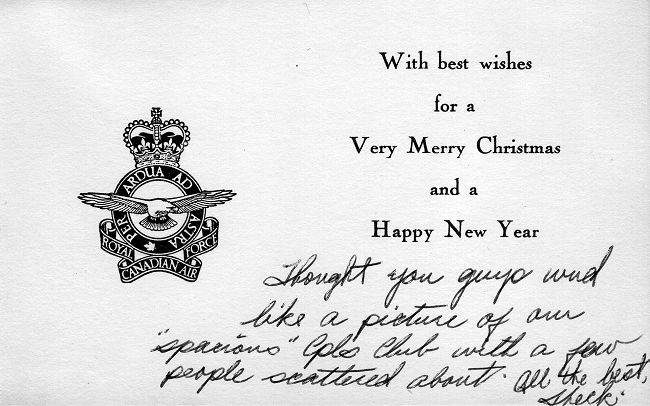 With best wishes
for a
Very Merry Christmas
and a
Happy New Year
PER ARDUA AD ASTRA
ROYAL CANADIAN AIR FORCE
Thought you guys wud
like a picture of our
"spacious" Cpls Club with a few
people scattered about. All the best,
Sheck.